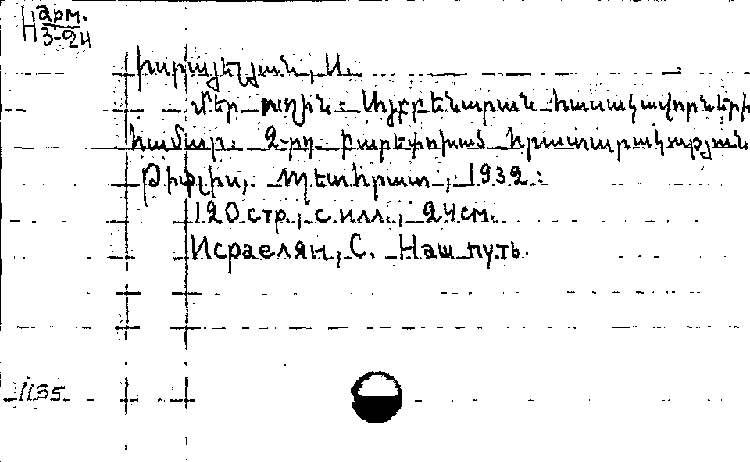 Н арм.
3-24
Իսրայելյան, Ս.
Մեր ուղին: Այբբենարան հասակավորների
համար. 2-րդ բարեփոխած հրատարակություն
Թիֆլիս, Պետհրատ, 1932:
120 стр., с илл., 24 см.
Исраелян, С. Наш путь.
1135